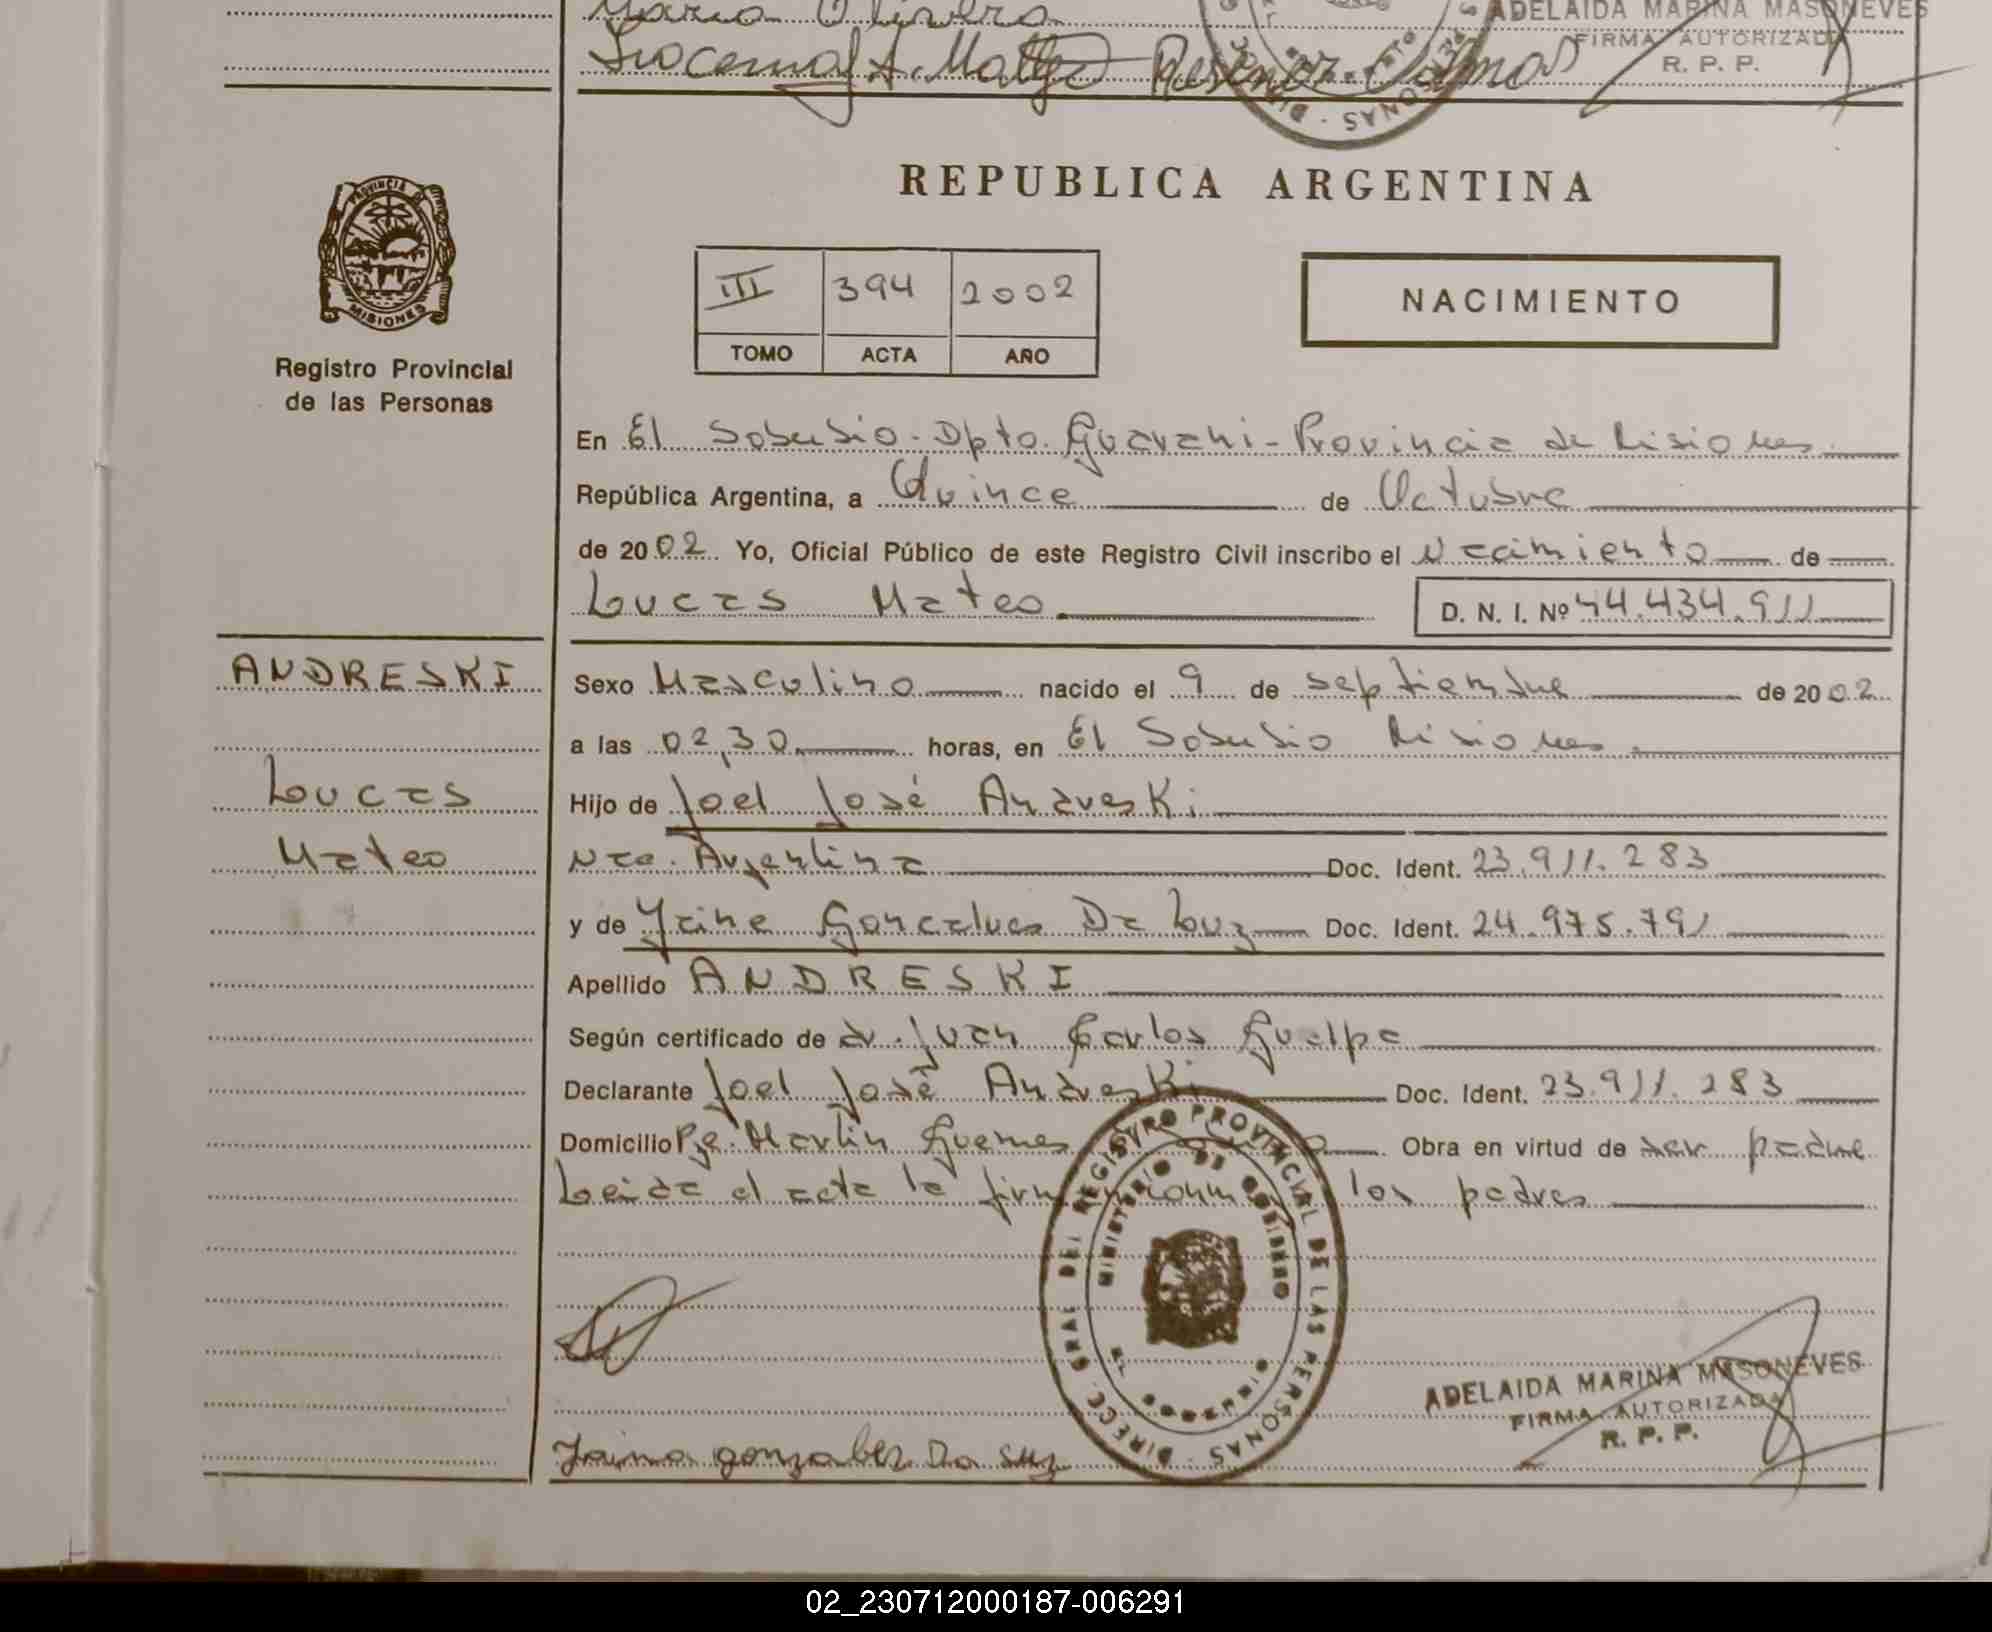 ADELAIDA MARINA MASONEVES
FIRMA AUTORIZADA
R. P. P.
PROVINCIA DE
MISIONES
Registro Provincial
de las Personas
REPUBLICA ARGENTINA
III 394 2002
TOMO ACTA AÑO
NACIMIENTO
En El Soberbio - Dpto. Guarani - Provincia de Misiones
República Argentina, a Quince de Octubre
de 2002 Yo, Oficial Público de este Registro Civil inscribo el Nacimiento de
Lucas Mateo D. N. I. Nº 44.434.911
ANDRESKI
Lucas
Mateo
Sexo Masculino nacido el 9 de septiembre de 2002
a las 02,30 horas, en El Soberbio Misiones
Hijo de Joel José Andreski
Nac. Argentina Doc. Ident. 23.911.283
y de Yaine Goncalves Da Luz Doc. Ident. 24.975.791
Apellido ANDRESKI
Según certificado de dr. Juan Carlos Gualpa
Declarante Joel José Andreski Doc. Ident. 23.911.283
Domicilio Pje. Martin Guemes Obra en virtud de ser padre
Leida el acta la los padres
DIRECC. GRAL DEL REGISTRO PROVINCIAL DE LAS PERSONAS
MINISTERIO DE GOBIERNO
MISIONES
ADELAIDA MARINA MASONEVES
FIRMA AUTORIZADA
R. P. P.
02_230712000187-006291